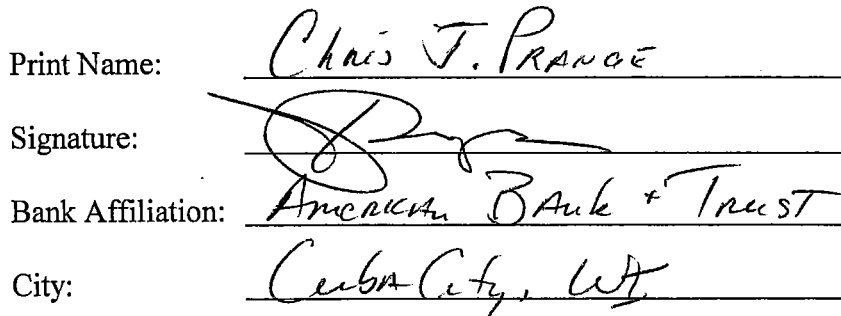 Print Name: Chris J. Prange
Signature:
Bank Affiliation: American Bank + Trust
City: Cuba City, WI